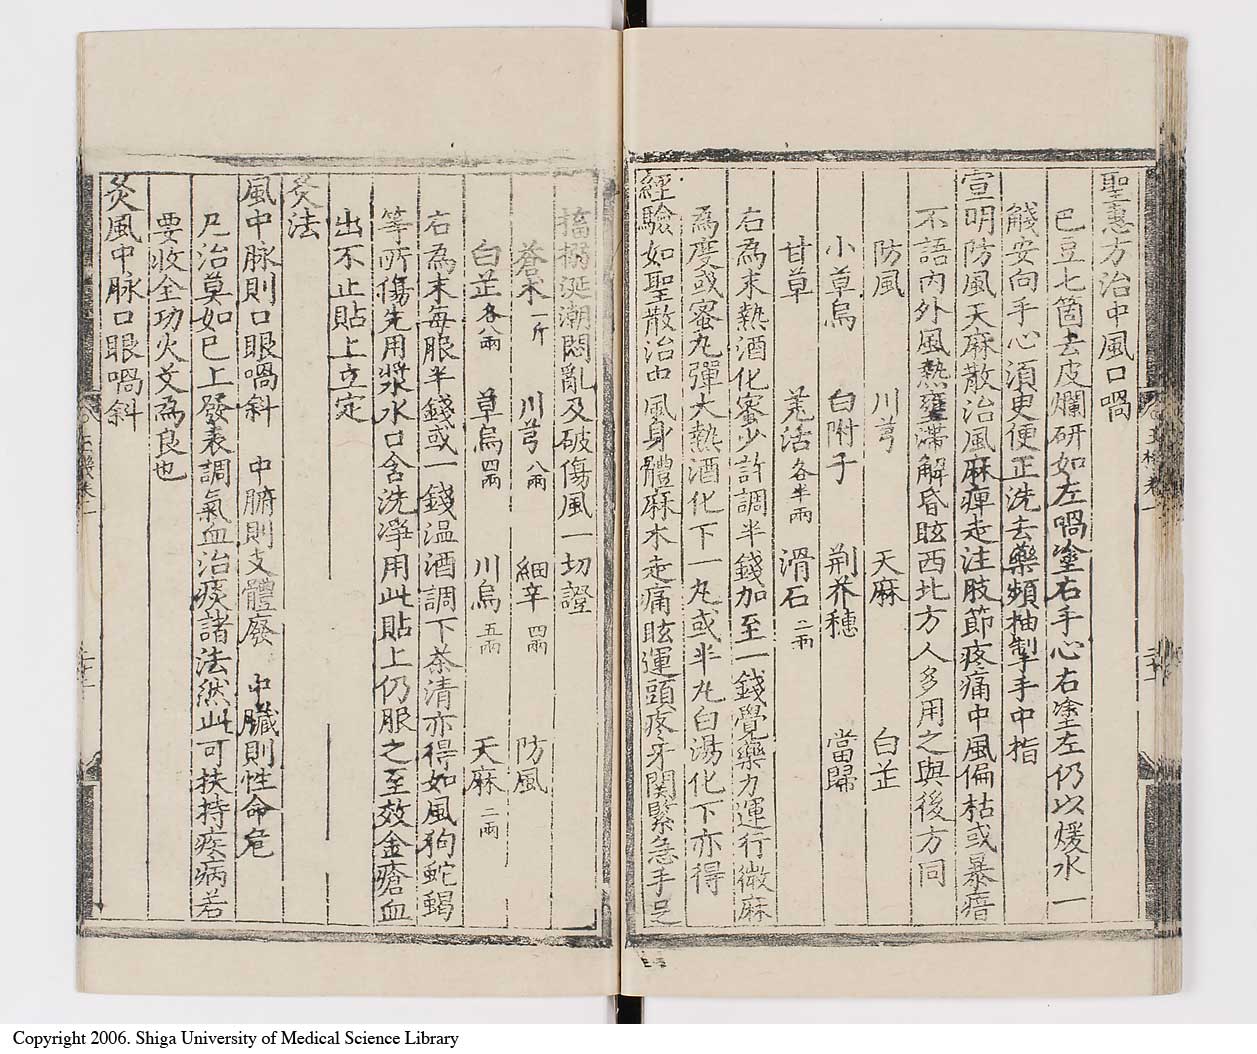 聖惠方治中風口喎
巴豆七箇去皮爛研如左喎塗右手心右塗左仍以煖水一
醆安向手心須臾便正洗去藥頻抽掣手中指
宣明防風天麻散治風麻痺走注肢節疼痛中風偏枯或暴瘖
不語内外風熱壅滯解昏眩西北方人多用之與後方同
防風 川芎 天麻 白芷
小草烏 白附子 荆芥穗 當歸
甘草 羗活各半兩 滑石二兩
右為末熱酒化蜜少許調半錢加至一錢覺藥力運行微麻
為度或蜜丸彈大熱酒化下一丸或半丸白湯化下亦得
經驗如聖散治中風身體麻木走痛眩運頭疼牙關緊急手足
搐搦涎潮悶亂及破傷風一切證
蒼朮一斤 川芎八兩 細辛四兩 防風
白芷各八兩 草烏四兩 川烏五兩 天麻二兩
右為末每服半錢或一錢温酒調下茶清亦得如風狗蛇蝎
等所傷先用漿水口含洗淨用此貼上仍服之至效金瘡血
出不止貼上立定
炙法
風中脉則口眼喎斜 中腑則支體廢 中臟則性命危
凡治莫如巳上發表調氣血治痰諸法然此可扶持疾病若
要收全功火艾為良也
炙風中脉口眼喎斜